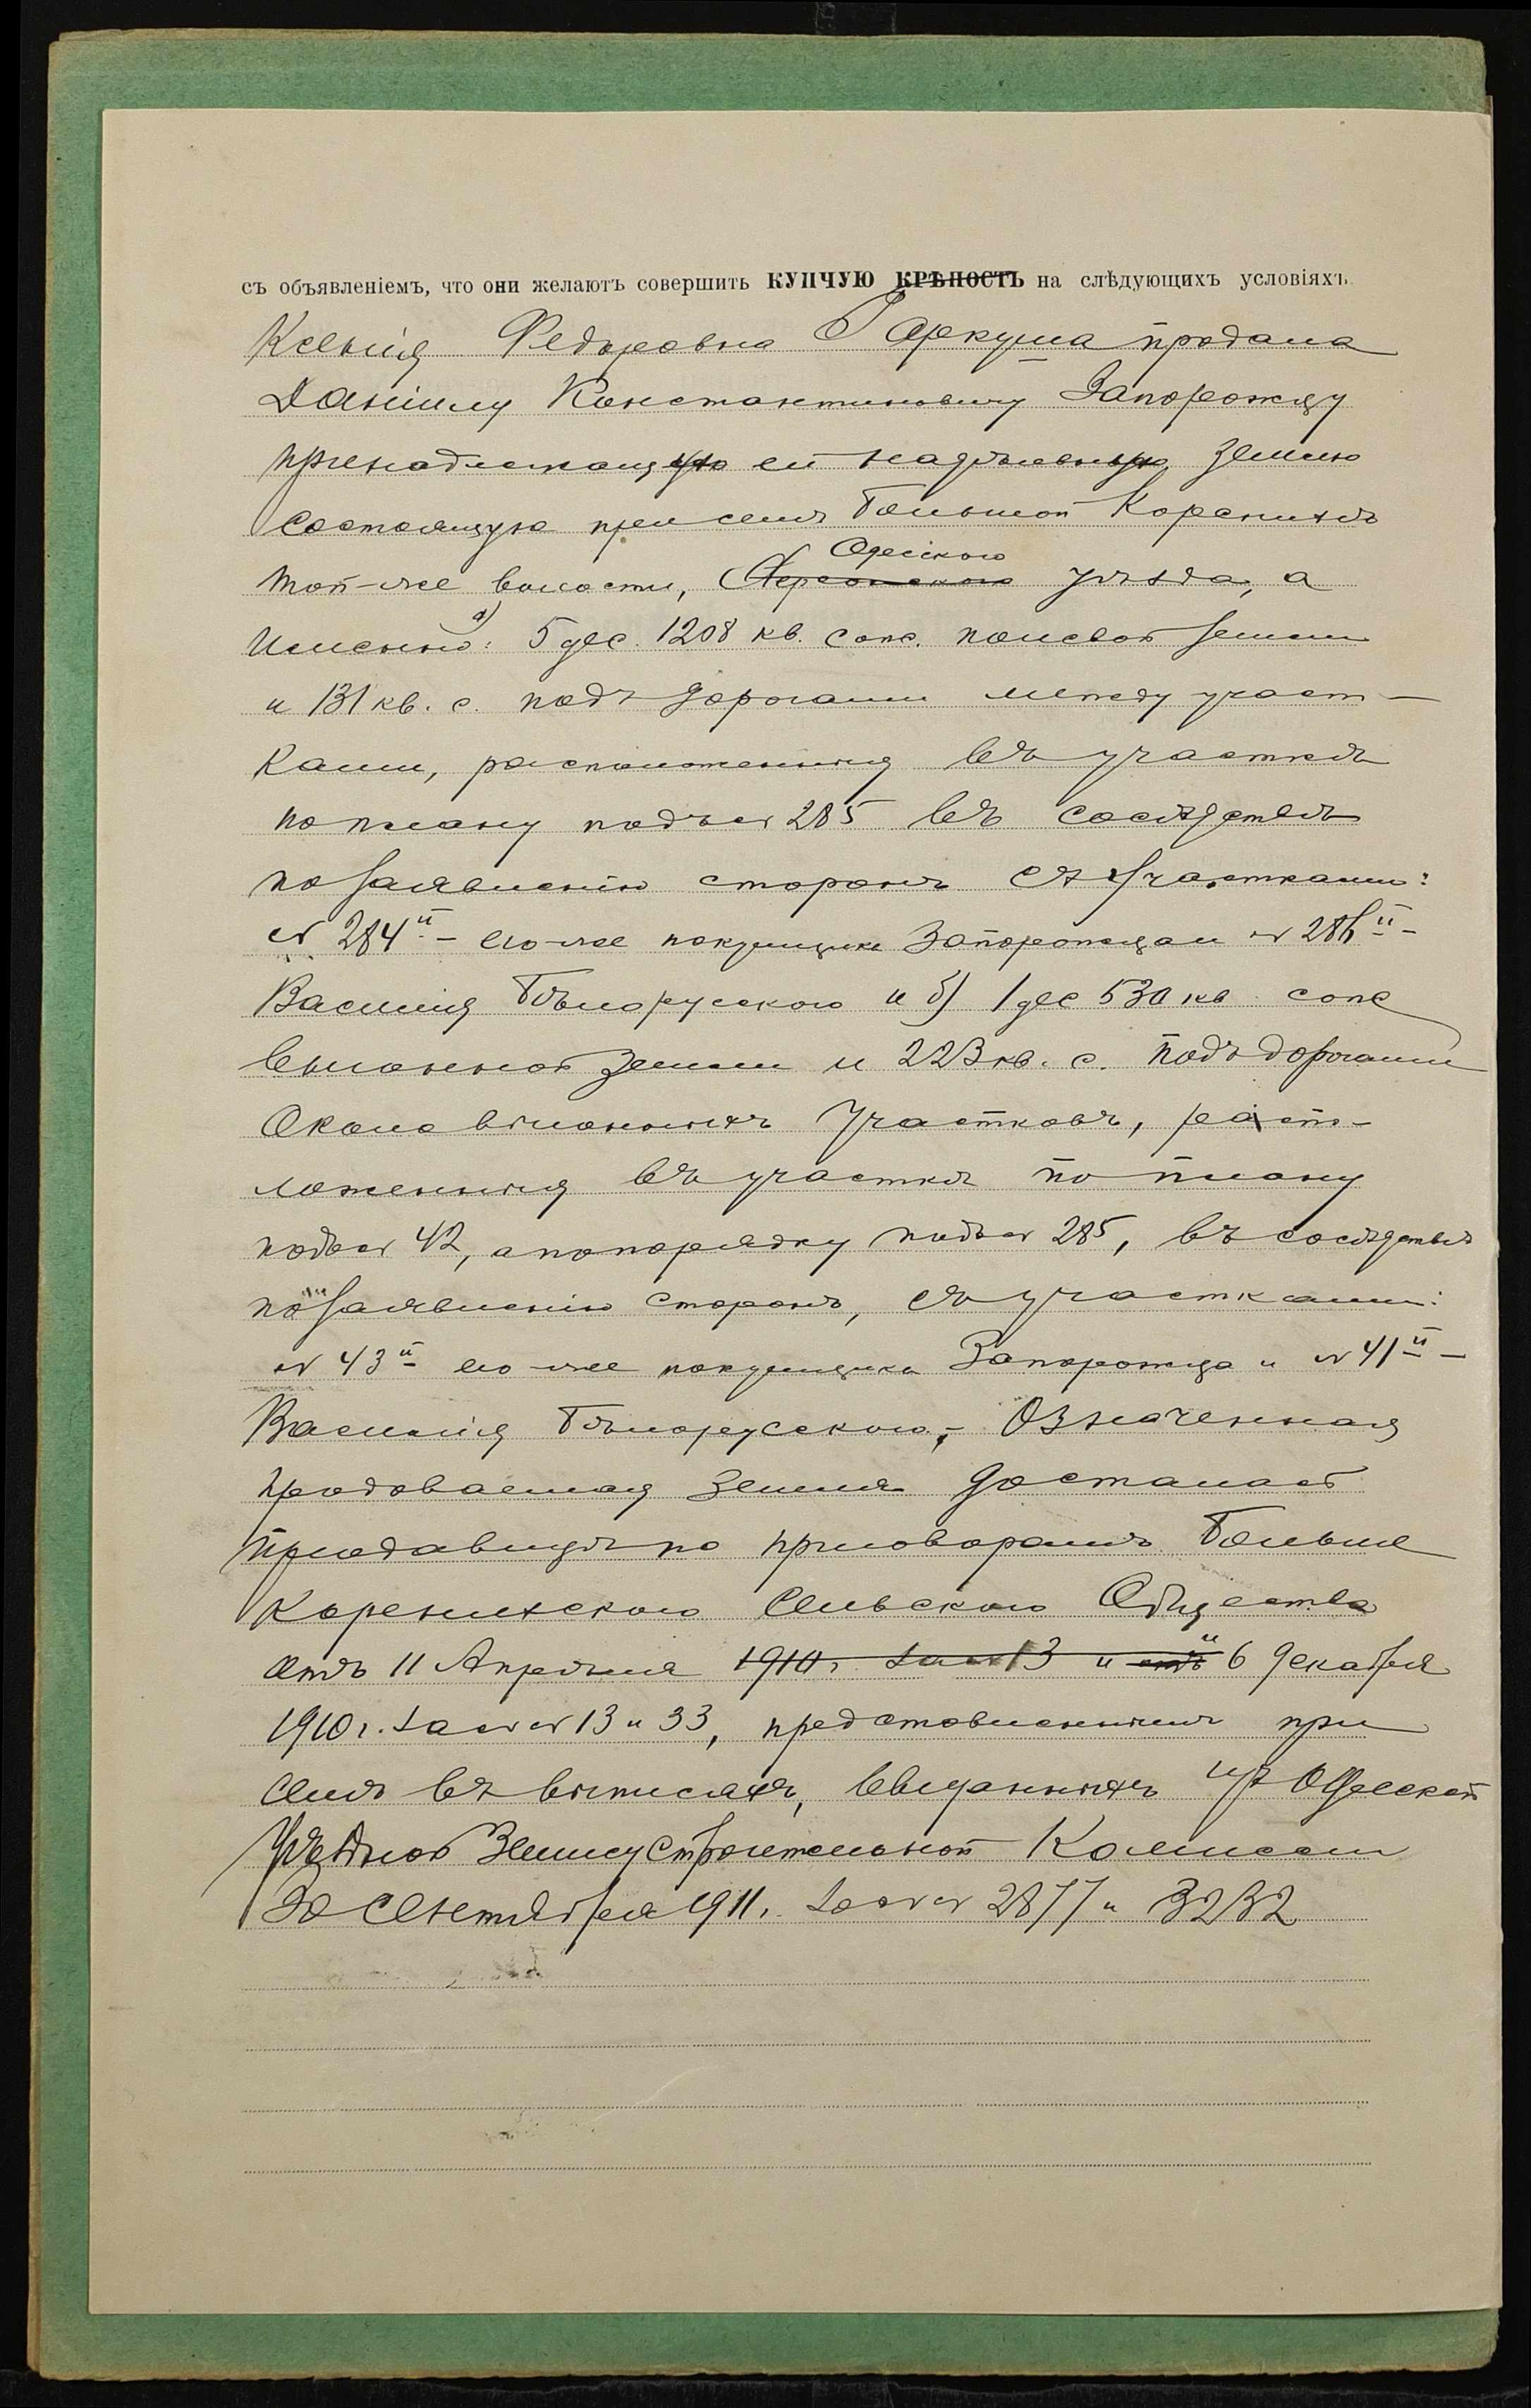 съ объявленіемъ, что они желаютъ совершить КУПЧУЮ КРѢПОСТЬ на слѣдующихъ условіяхъ
Ксенія Федоровна Гаркуша продала
Даніилу Константиновичу Запорожцу
принадлежащую ей надѣльную землю
состоящую при селѣ Большой Каренихѣ
Одесскаго
той-же волости, Херсонскаго уѣзда, а
а)
именно: 5 дес. 1208 кв. саж. полевой земли
и 131 кв. с. подъ дорогами между участ-
ками, расположенныя въ участкѣ
по плану подъ № 285 въ сосѣдствѣ
по заявленію сторонъ съ участками:
№ 284й - его-же покупщика Запорожца и № 286й -
Василія Бѣлорусскаго и б) 1 дес 530 кв. саж
выгонной земли и 223 кв. с. подъ дорогами
Около выгонныхъ участковъ, распо-
ложенныя въ участкѣ по плану
подъ № 42, а по порядку подъ № 285, въ сосѣдствѣ
по заявленію сторонъ, съ участками:
№ 43й его-же покупщика Запорожца и № 41й -
Василія Бѣлорусскаго,- Означенная
продоваемая земля досталась
продавицѣ по приговорамъ Больше
Каренихскаго Сельскаго Общества
отъ 11 Апрѣля 1910 г. за № 13 и отъ и 6 декабря
1910 г. за №№ 13 и 33, представленнымъ при
семъ въ выписяхъ, выданныхъ изъ Одесской
Уѣздной Землеустроительной Комиссіи
30 Сентября 1911 г. за №№ 2877 и 3232